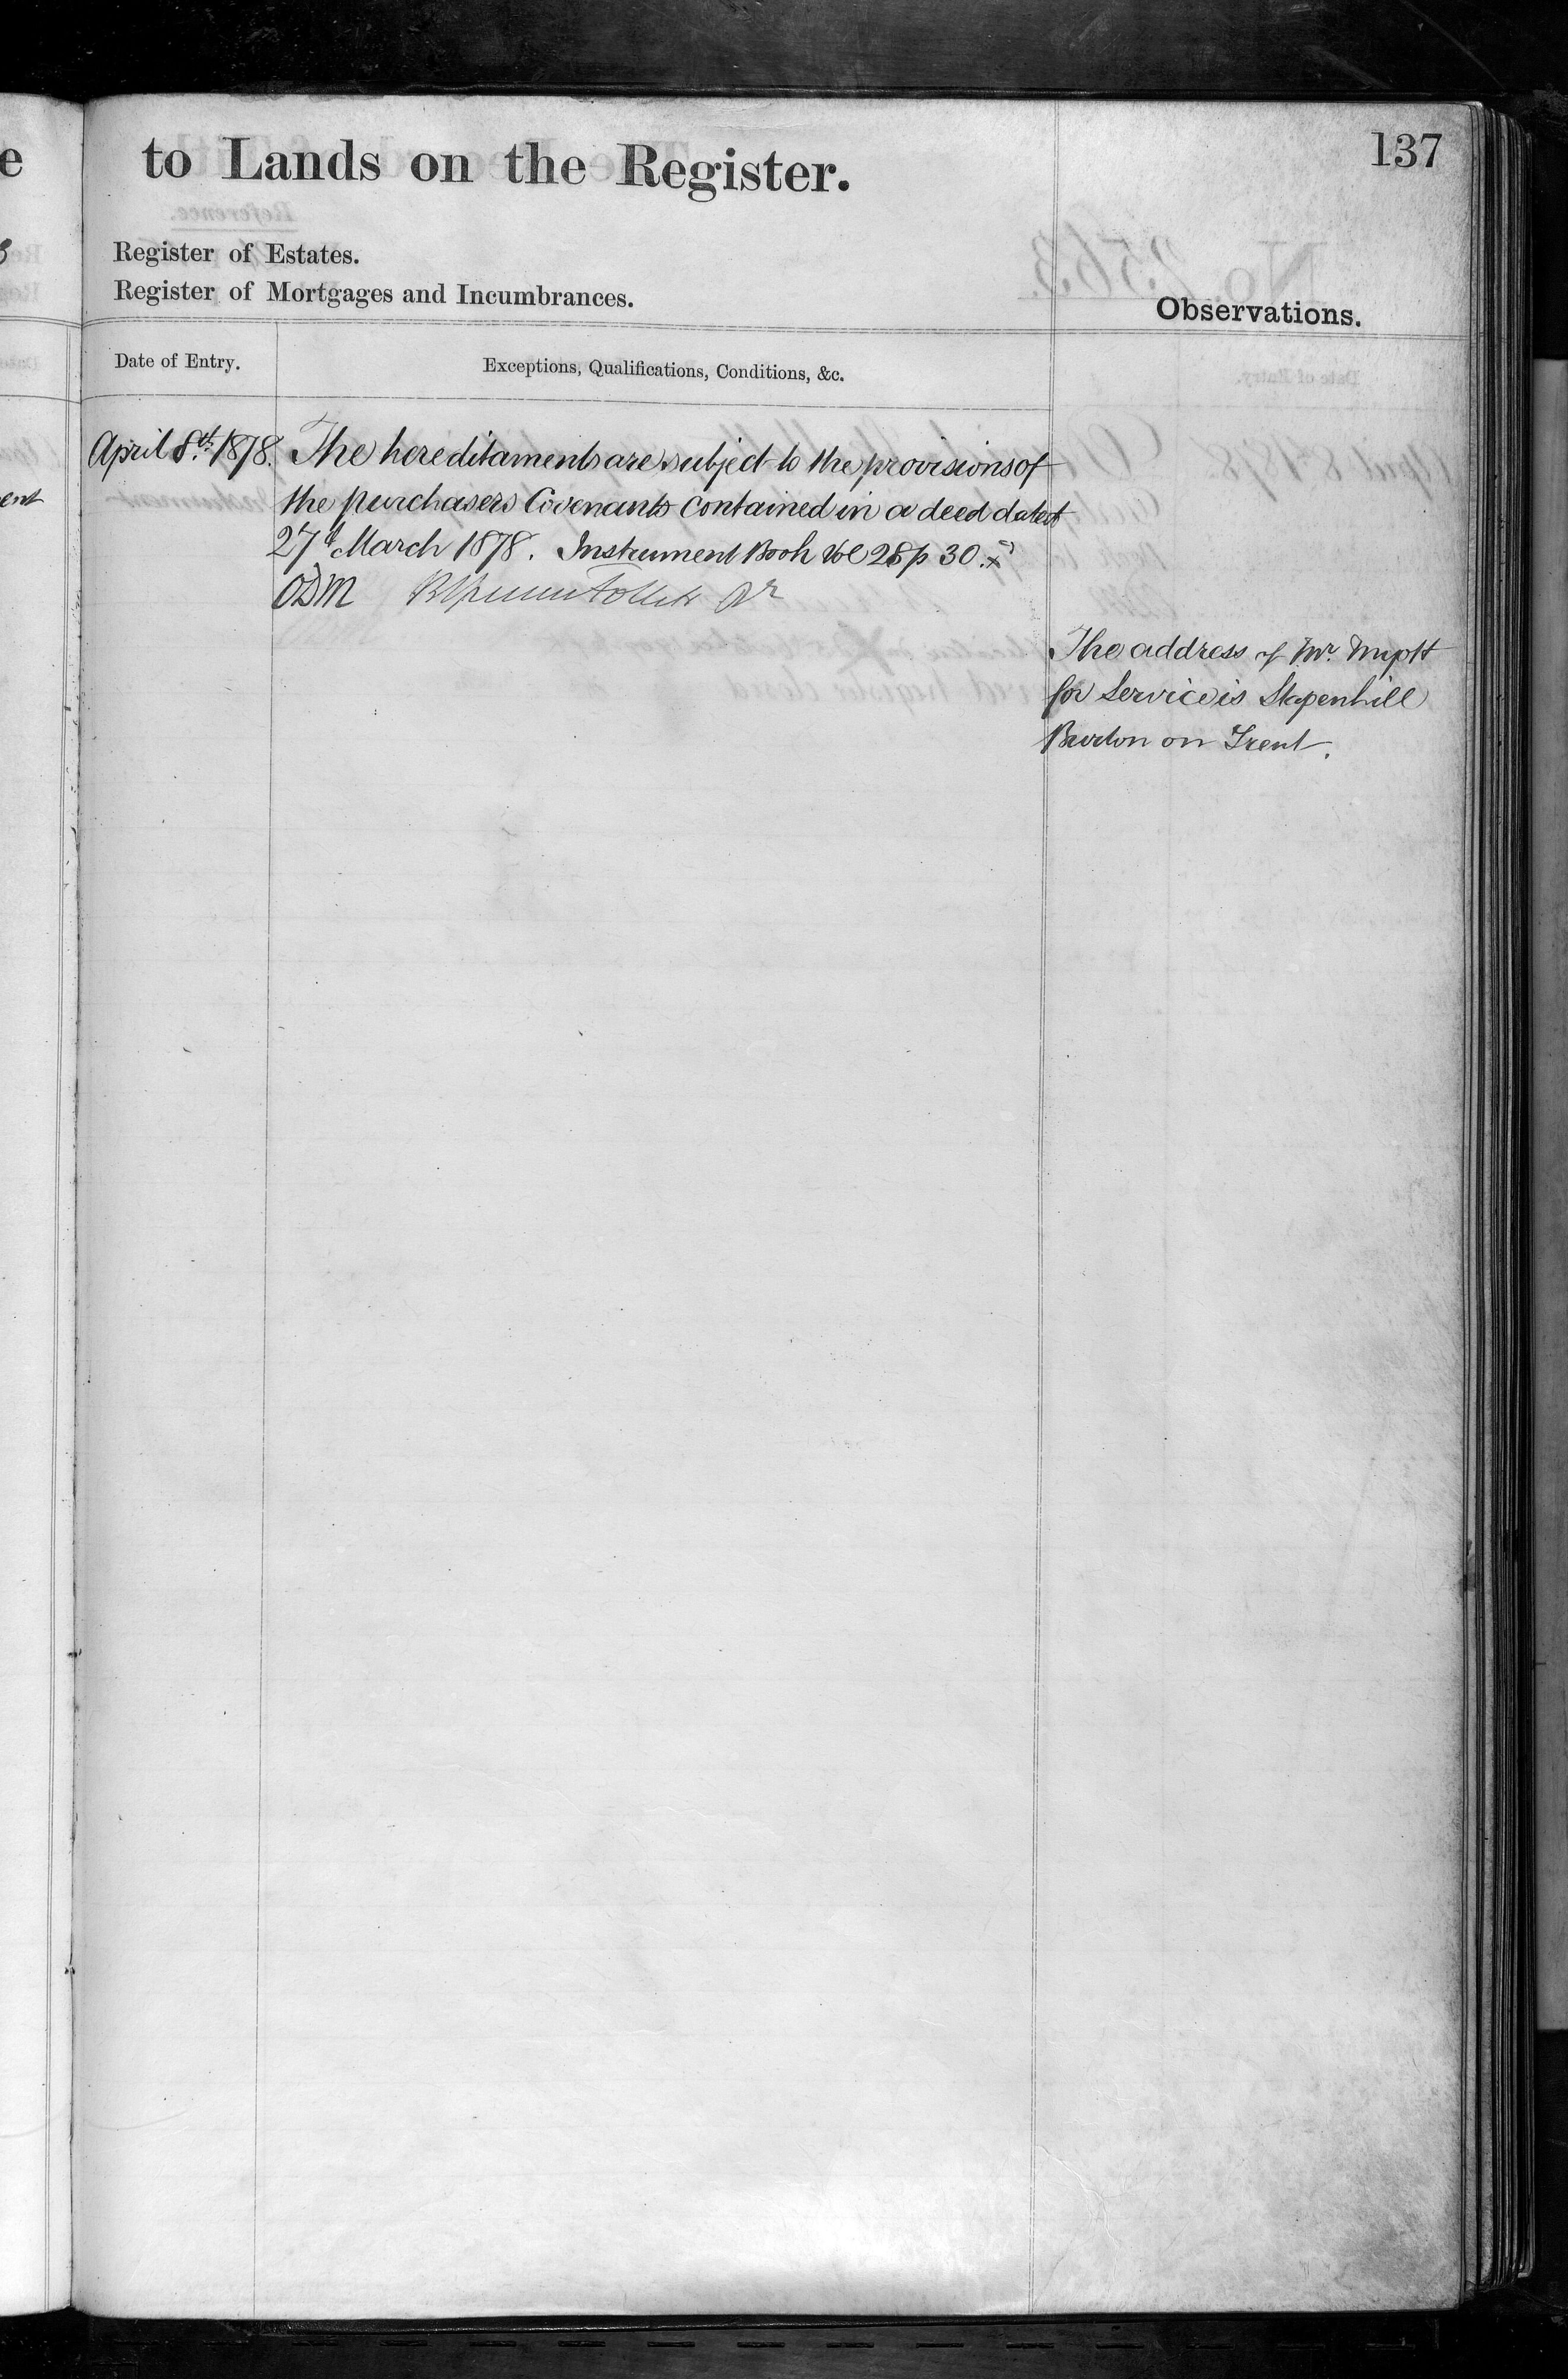 137
to Lands on the Register.
Register of Estates.
Register of Mortgages and Incumbrances.
Observations.
Date of Entry.
Exceptions, Qualifications, Conditions, &c.
April 8th 1878. The hereditaments are subject to the provisions of
the purchasers Covenants contained in a deed dated
27th March 1878. Instrument Book Vol 28 p 30. x
ODM
The address of Mr.
for Service is Stapenhill
Burton on Trent.